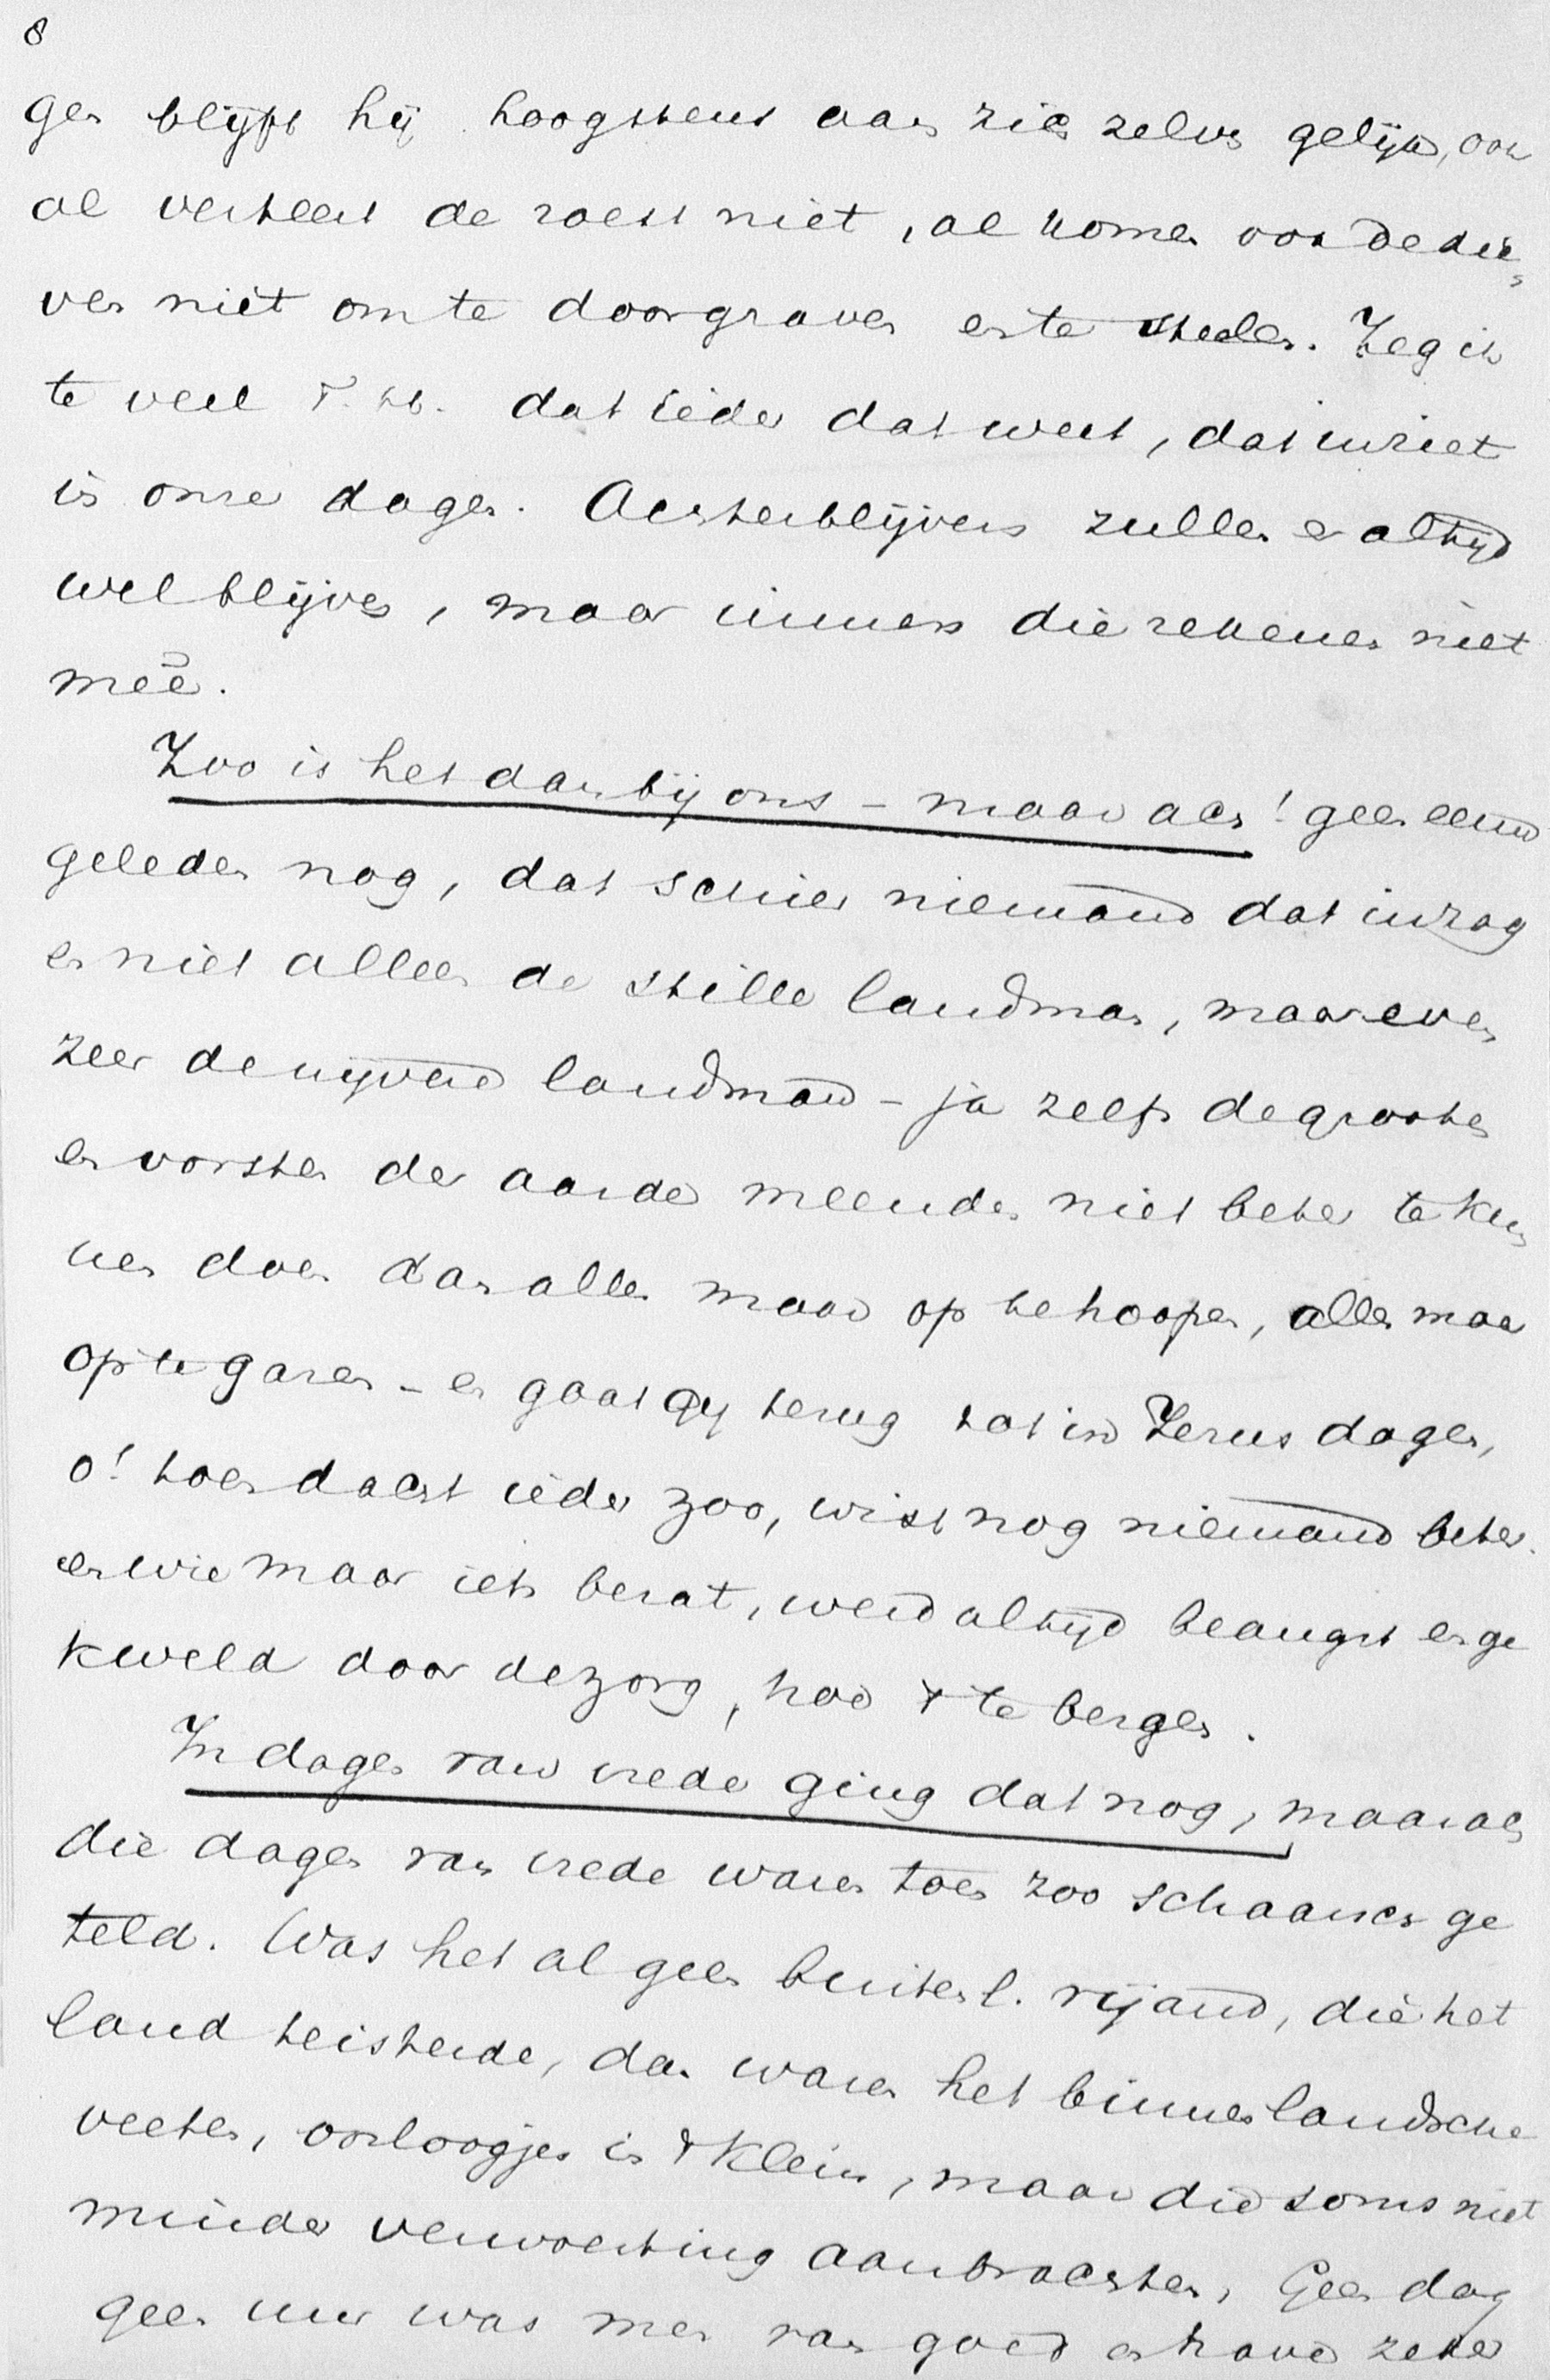 8
gen blijft hij hoogstens aan zich zelve gelijk, ook
al verteert de roest niet, al komen ook de die-
ven niet om te doorgraven en te stelen. Zeg ik
te veel dat ieder dat weet, dat inziet
in onze dagen. Achterblijvers zullen er altijd
wel blijven, maar immers die rekenen niet
meê.
Zoo is het dan bij ons - maar ach! geen eeuw
geleden nog, dat schier niemand dat inzag
en niet alleen de stille landman, maar even
zeer de nijvere landman - ja zelfs de grooten
en vorsten der aarde meenden niet beter te kun
nen doen dan alles maar op te hoopen, alles maar
op te garen - en gaat gij terug tot in Jezus dagen,
o! toen dacht ieder zoo, wist nog niemand beter.
en wie maar iets bezat, werd altijd beangst en ge
kweld door de zorg, hoe 't te bergen.
In dagen van vrede ging dat nog, maar ach
die dagen van vrede waren toen zoo schaarsch ge
teld. Was het al geen buitenl. vijand, die het
land teisterde, dan waren het binnenlandsche
veeten, oorloogjes in 't klein, maar die soms niet
minder verwoesting aanbrachten, Geen dag
geen uur was men van goed en have zeker